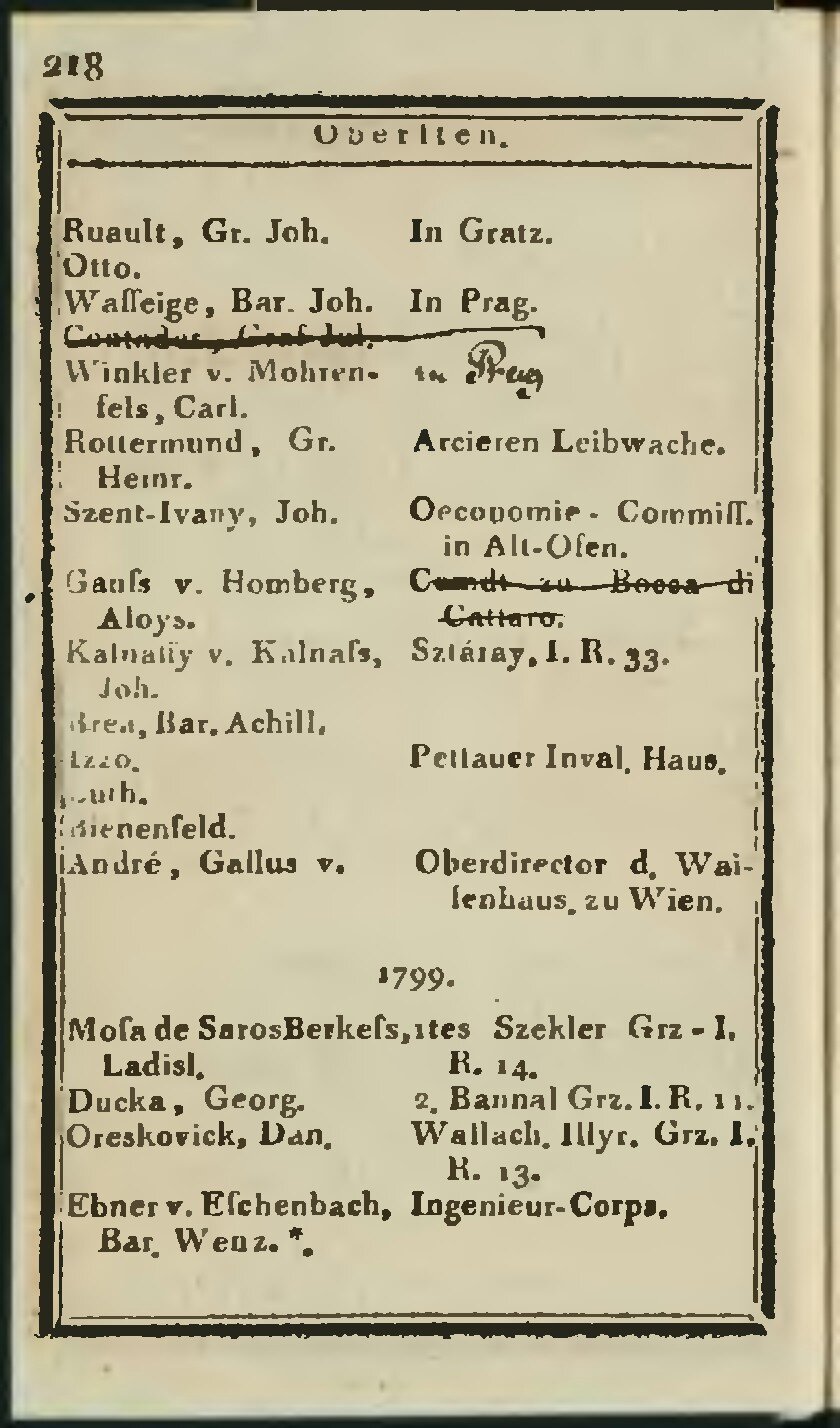 218
Obersten.
Ruault, Gr. Joh. In Gratz.
Otto.
Waſſeige, Bar. Joh. In Prag.
Graf Jul.
Winkler v. Mohren- in Prag
fels, Carl.
Rottermund, Gr. Arcieren Leibwache.
Heinr.
Szent-Ivany, Joh. Oeconomie - Commiſſ.
in Alt-Ofen.
Gauſs v. Homberg, Comdt zu Bocca di
Aloys. Cattaro.
Kalnaſſy v. Kalnaſs, Sztáray, I. R. 33.
Joh.
Bar. Achill.
Pettauer Inval. Haus.
Bienenfeld.
André, Gallus v. Oberdirector d. Wai-
ſenhaus. zu Wien.
1799.
Moſa de SarosBerkeſs, 1tes Szekler Grz - I.
Ladisl. R. 14.
Ducka, Georg. 2. Bannal Grz. I. R. 11.
Oreskovick, Dan. Wallach. Illyr. Grz. I.
R. 13.
Ebner v. Eſchenbach, Ingenieur-Corps.
Bar. Wenz. *.